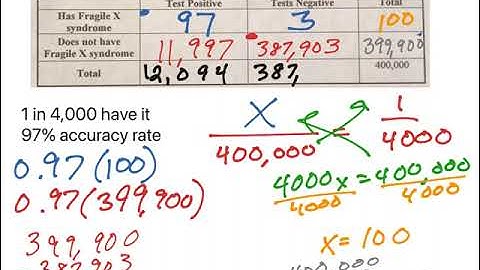 Test Positive Tests Negative Total
Has Fragile X syndrome 97 3 100
Does not have Fragile X syndrome 11,997 387,903 399,900
Total 12,094 387, 400,000
1 in 4,000 have it
97% accuracy rate
0.97(100)
0.97(399,900)
399,900
387,903
X / 400,000 = 1 / 4000
4000x = 400,000
4000 4000
x = 100
400,000